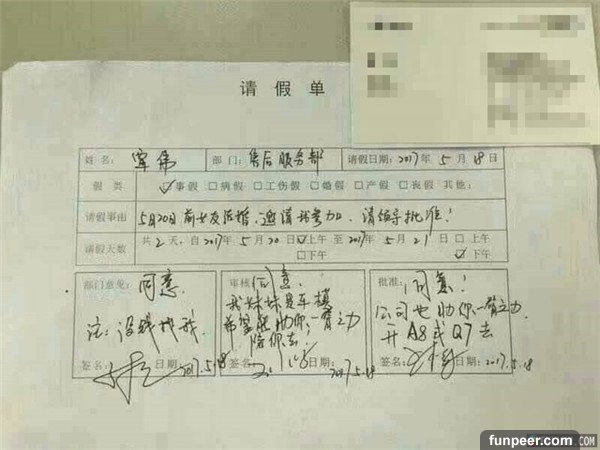 请假单
姓名: 军伟 部门: 售后服务部 请假日期: 2017年5月18日
假类 ☑事假 □病假 □工伤假 □婚假 □产假 □丧假 其他:
请假事由 5月20日前女友结婚.邀请我参加.请领导批准!
请假天数 共2天,自2017年5月20日☑上午 □下午 至2017年5月21日□上午 ☑下午
部门意见: 同意.
注:没钱找我.
签名: 日期: 2017.5.18
审核: 同意.
我妹妹是车模
希望能助你一臂之力
陪你去!
签名: 日期: 2017.5.18
批准: 同意!
公司也助你一臂之力
开A8或Q7去
签名: 日期: 2017.5.18
funpeer.com